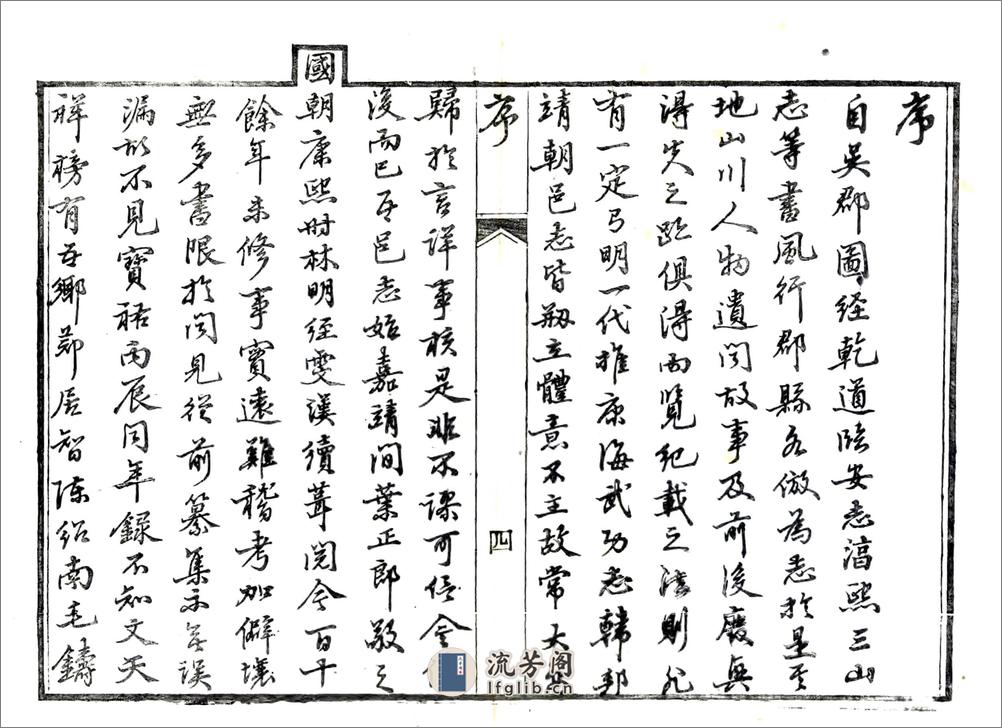 序
自吳郡圖經乾道臨安志淳熙三山
志等書風行郡縣各倣為志於是天
地山川人物遺聞故事及前後廢興
得失之跡俱得而覽紀載之法則非
有一定弓明一代推康海武功志韓邦
靖朝邑志皆剏立體意不主故常大
歸於言詳事核是非不謬可信令
後而已吾邑志始嘉靖間葉正郎敬之
國朝康熙時林明經雯漢續葺閱今百十
餘年未修事實遠難稽考加僻壤
無多書限於聞見從前纂集不無誤
漏故不見寶祐丙辰同年錄不知文天
祥榜有吾鄉鄭君智陳紹南
序
四
流芳阁
lfglib.cn